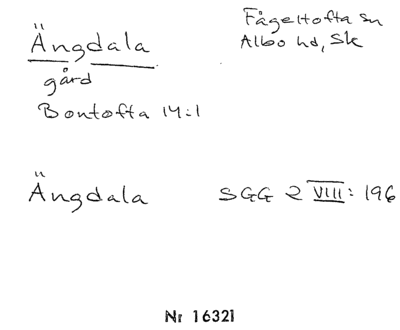 Ängdala
Fågeltofta sn
Albo hd, Sk
gård
Bontofta 14:1
Ängdala SGG 2 VIII: 196
Nr 16321